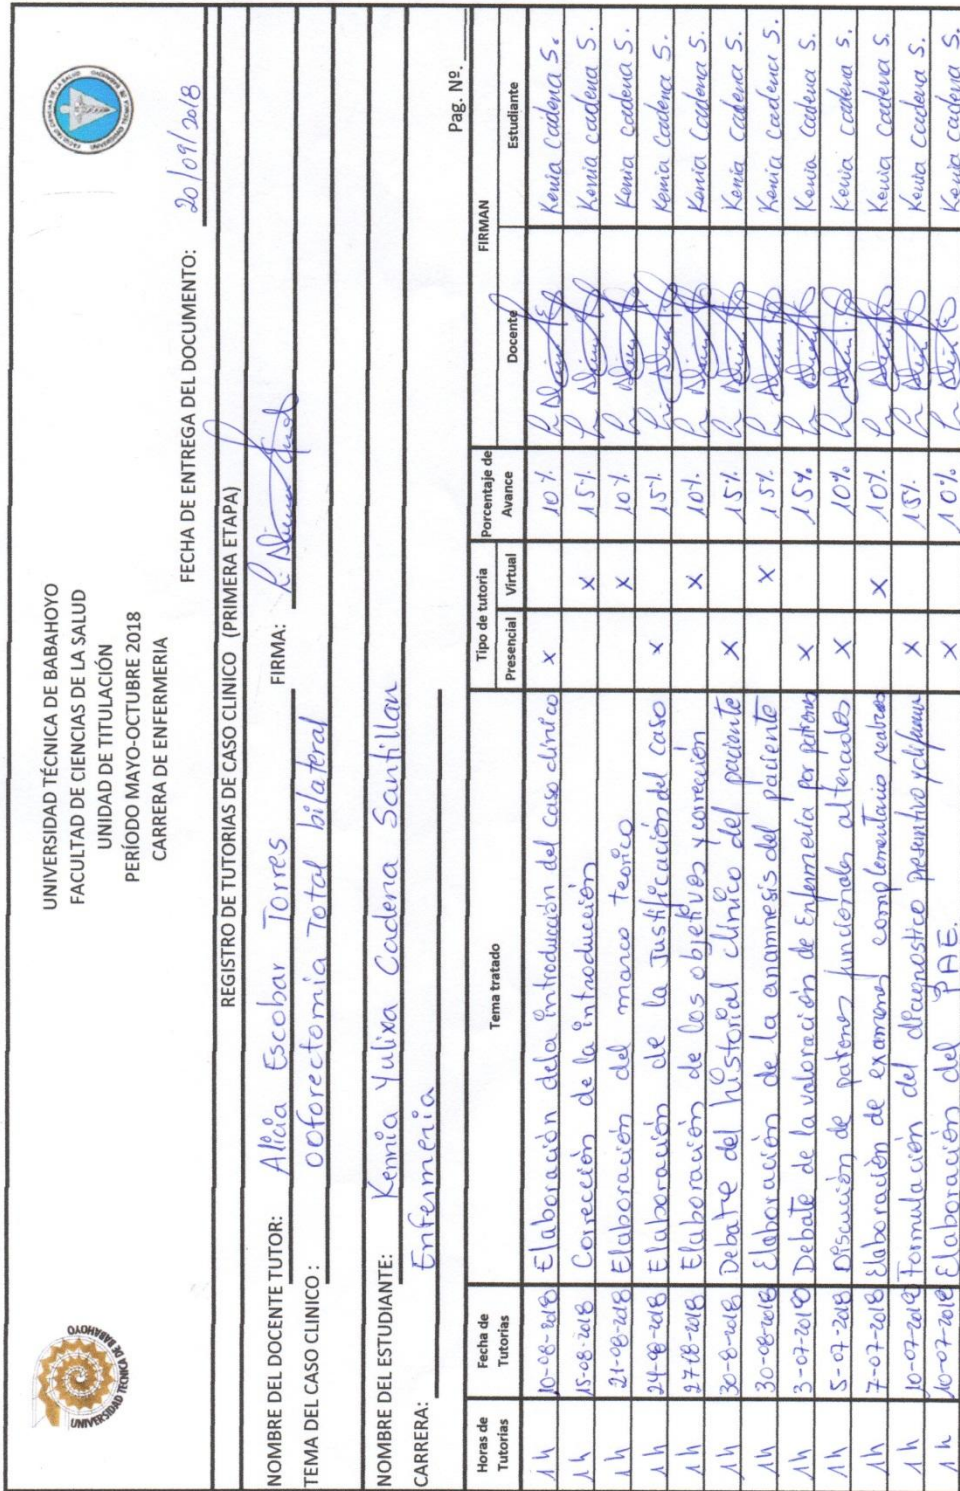 UNIVERSIDAD TÉCNICA DE BABAHOYO
FACULTAD DE CIENCIAS DE LA SALUD
UNIDAD DE TITULACIÓN
PERÍODO MAYO-OCTUBRE 2018
CARRERA DE ENFERMERIA
UNIVERSIDAD TECNICA DE BABAHOYO
FECHA DE ENTREGA DEL DOCUMENTO: 20/09/2018
REGISTRO DE TUTORIAS DE CASO CLINICO (PRIMERA ETAPA)
NOMBRE DEL DOCENTE TUTOR: Alicia Escobar Torres FIRMA:
TEMA DEL CASO CLINICO : ooforectomia Total bilateral
NOMBRE DEL ESTUDIANTE: Kennia Yulixa Cadena Santillan
CARRERA: Enfermeria
Pag. Nº.
Horas de Tutorias Fecha de Tutorias Tema tratado Tipo de tutoria Porcentaje de Avance FIRMAN
Presencial Virtual Docente Estudiante
1 h 10-08-2018 Elaboración dela introducción del caso clinico x 10%. Kenia Cadena S.
1 h 15-08-2018 Corrección de la introducción x 15%. Kenia cadena S.
1 h 21-08-2018 Elaboración del marco teorico x 10%. Kenia cadena S.
1 h 24-08-2018 Elaboración de la Justificación del caso x 15%. Kenia Cadena S.
1 h 27-08-2018 Elaboración de los objetivos y correción x 10%. Kenia Cadena S.
1 h 30-8-2018 Debate del historial clinico del paciente x 15%. Kenia Cadena S.
1 h 30-08-2018 Elaboración de la anamnesis del paciente x 15%. Kenia Cadena S.
1 h 3-07-2018 Debate de la valoración de Enfermería por patrones x 15%. Kenia Cadena S.
1 h 5-07-2018 Discución de patrones funcionales alterados x 10%. Kenia Cadena S.
1 h 7-07-2018 Elaboración de examenes complementario x 10%. Kenia Cadena S.
1 h 10-07-2018 Formulación del diagnostico presuntivo x 15%. Kenia Cadena S.
1 h 10-07-2018 Elaboración del PAE. x 10%. Kenia cadena S.